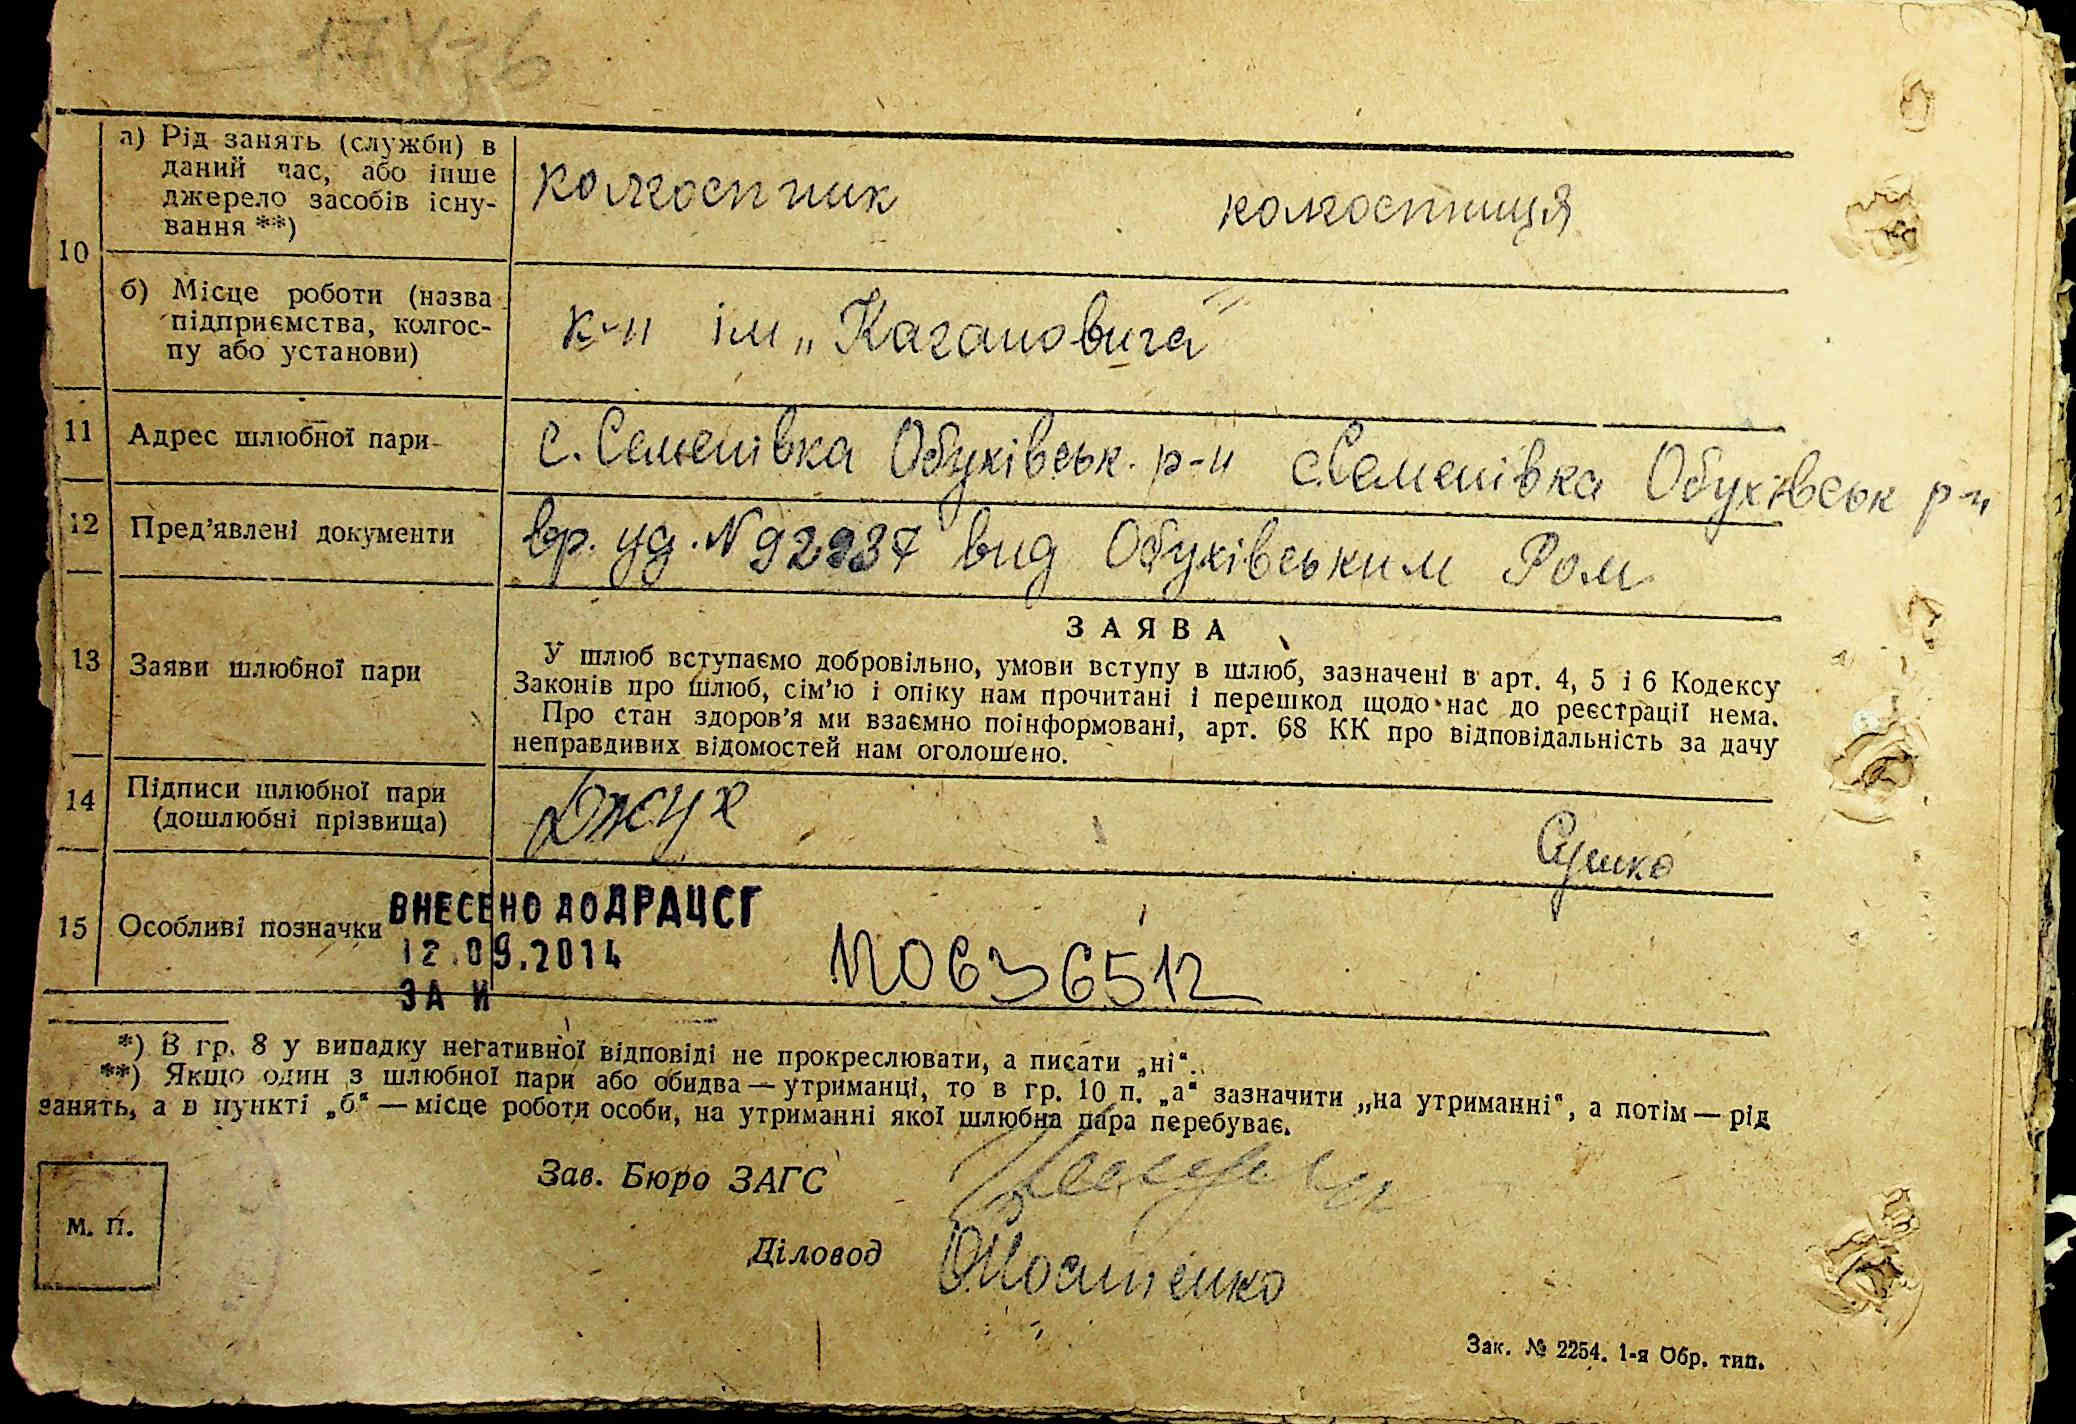 17436
а) Рід занять (служби) в
даний час, або інше
джерело засобів існу-
вання **)
колгоспник колгоспниця
10
б) Місце роботи (назва
підприємства, колгос-
пу або установи)
к-п ім „Кагановича"
11 Адрес шлюбної пари с. Семенівка Обухівськ. р-н с. Семенівка Обухівськ р-н
12 Пред'явлені документи вр. уд. № 92937 вид Обухівським Ром
13 Заяви шлюбної пари
ЗАЯВА
У шлюб вступаємо добровільно, умови вступу в шлюб, зазначені в арт. 4, 5 і 6 Кодексу
Законів про шлюб, сім'ю і опіку нам прочитані і перешкод щодо нас до реєстрації нема.
Про стан здоров'я ми взаємно поінформовані, арт. 68 КК про відповідальність за дачу
неправдивих відомостей нам оголошено.
14 Підписи шлюбної пари
(дошлюбні прізвища)
Джух Сушко
15 Особливі позначки
ВНЕСЕНО ДО ДРАЦСГ
12.09.2014
ЗА И
110636512
*) В гр. 8 у випадку негативної відповіді не прокреслювати, а писати „ні".
**) Якщо один з шлюбної пари або обидва — утриманці, то в гр. 10 п. „а" зазначити „на утриманні", а потім — рід
занять, а в пункті „б" — місце роботи особи, на утриманні якої шлюбна пара перебуває.
Зав. Бюро ЗАГС
м. п.
Діловод
Зак. № 2254. 1-я Обр. тип.